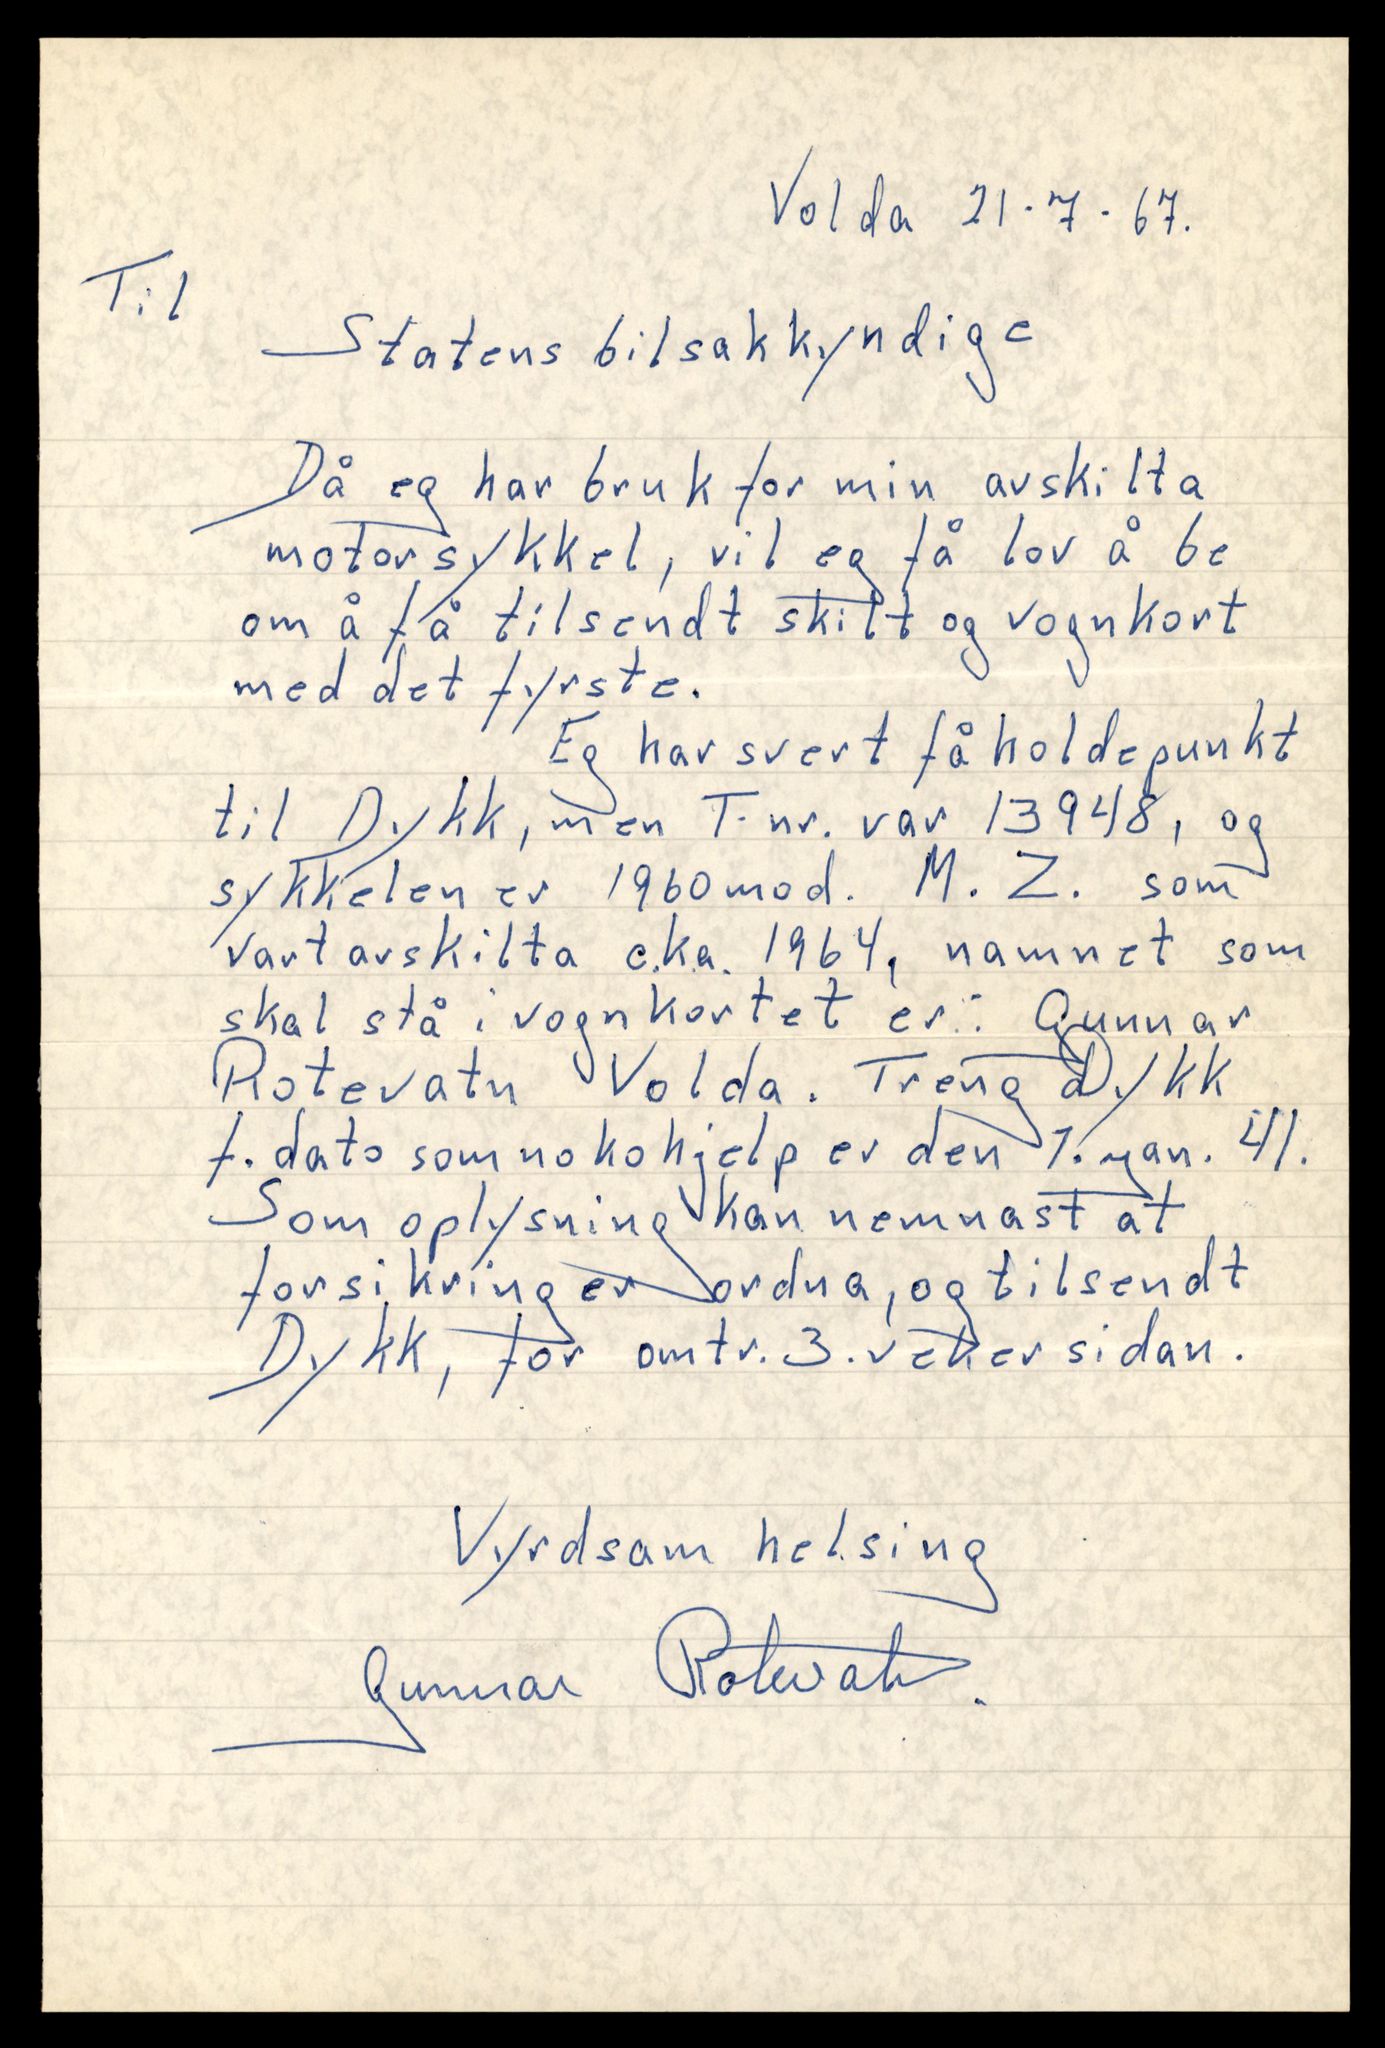 Volda 21.7.67.
Til
Statens bilsakkyndige
Då eg har bruk for min avskilta
motorsykkel, vil eg få lov å be
om å få tilsendt skilt og vognkort
med det fyrste.
Eg har svert få holdepunkt
til Dykk, men T-nr. var 13948, og
sykkelen er 1960 mod. M. Z. som
vart avskilta c.ka. 1964, namnet som
skal stå i vognkortet er: Gunnar
Rotevatn Volda. Treng Dykk
f. dato som noko hjelp er den 7. jan. 41.
Som oplysning kan nemnast at
forsikring er ordna, og tilsendt
Dykk, for omtr. 3. veker sidan.
Vyrdsam helsing
Gunnar Rotevatn.